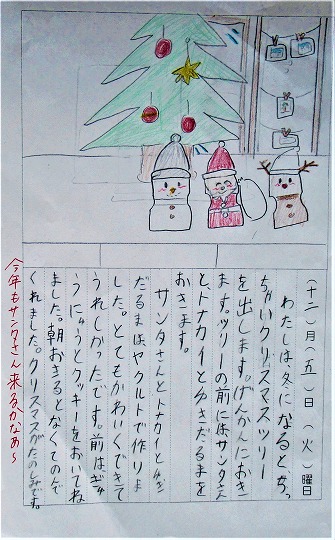 (十二)月(五)日(火)曜日
わたしは、冬になると、ちっ
ちゃいクリスマスツリー
を出します。げんかんにおき
ます。ツリーの前にはサンタさん
と、トナカイとゆきだるまを
おきます。
サンタさんとトナカイとゆき
だるまはヤクルトで作りま
した。とてもかわいくできて
うれしかったです。前はぎゅ
うにゅうとクッキーをおいてね
ました。朝おきるとなくてのんで
くれました。クリスマスがたのしみです。
今年もサンタさん来るかなあ〜